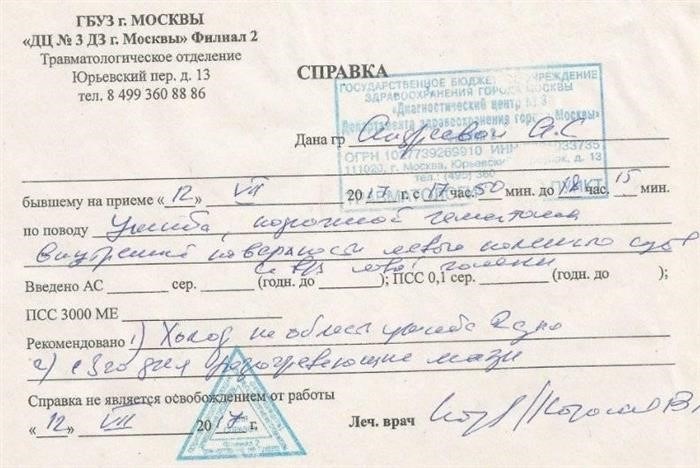 ГБУЗ г. МОСКВЫ
«ДЦ № 3 ДЗ г. Москвы» Филиал 2
Травматологическое отделение
Юрьевский пер. д. 13
тел. 8 499 360 88 86
СПРАВКА
ГОСУДАРСТВЕННОЕ БЮДЖЕТНОЕ УЧРЕЖДЕНИЕ
ЗДРАВООХРАНЕНИЯ ГОРОДА МОСКВЫ
«Диагностический центр № 3
Департамента здравоохранения города Москвы»
Дана гр Андреевой А.С
ОГРН 1027739269910 ИНН
111020, г. Москва, Юрьевский д. 13
тел.: (495) 360
бывшему на приеме «12» VII 2017 г. с 17 час. 50 мин. до 18 час. 15 мин.
по поводу Ушиба, подкожной гематомы
внутренней поверхности левого коленного суст
левой голени
Введено АС сер. (годн. до ); ПСС 0,1 сер. (годн. до );
ПСС 3000 МЕ
Рекомендовано 1) Холод на область ушиба 2 дня
2) с 3го дня разогревающие мази
Справка не является освобождением от работы
«12» VII 2017 г. Леч. врач
Филиал 2